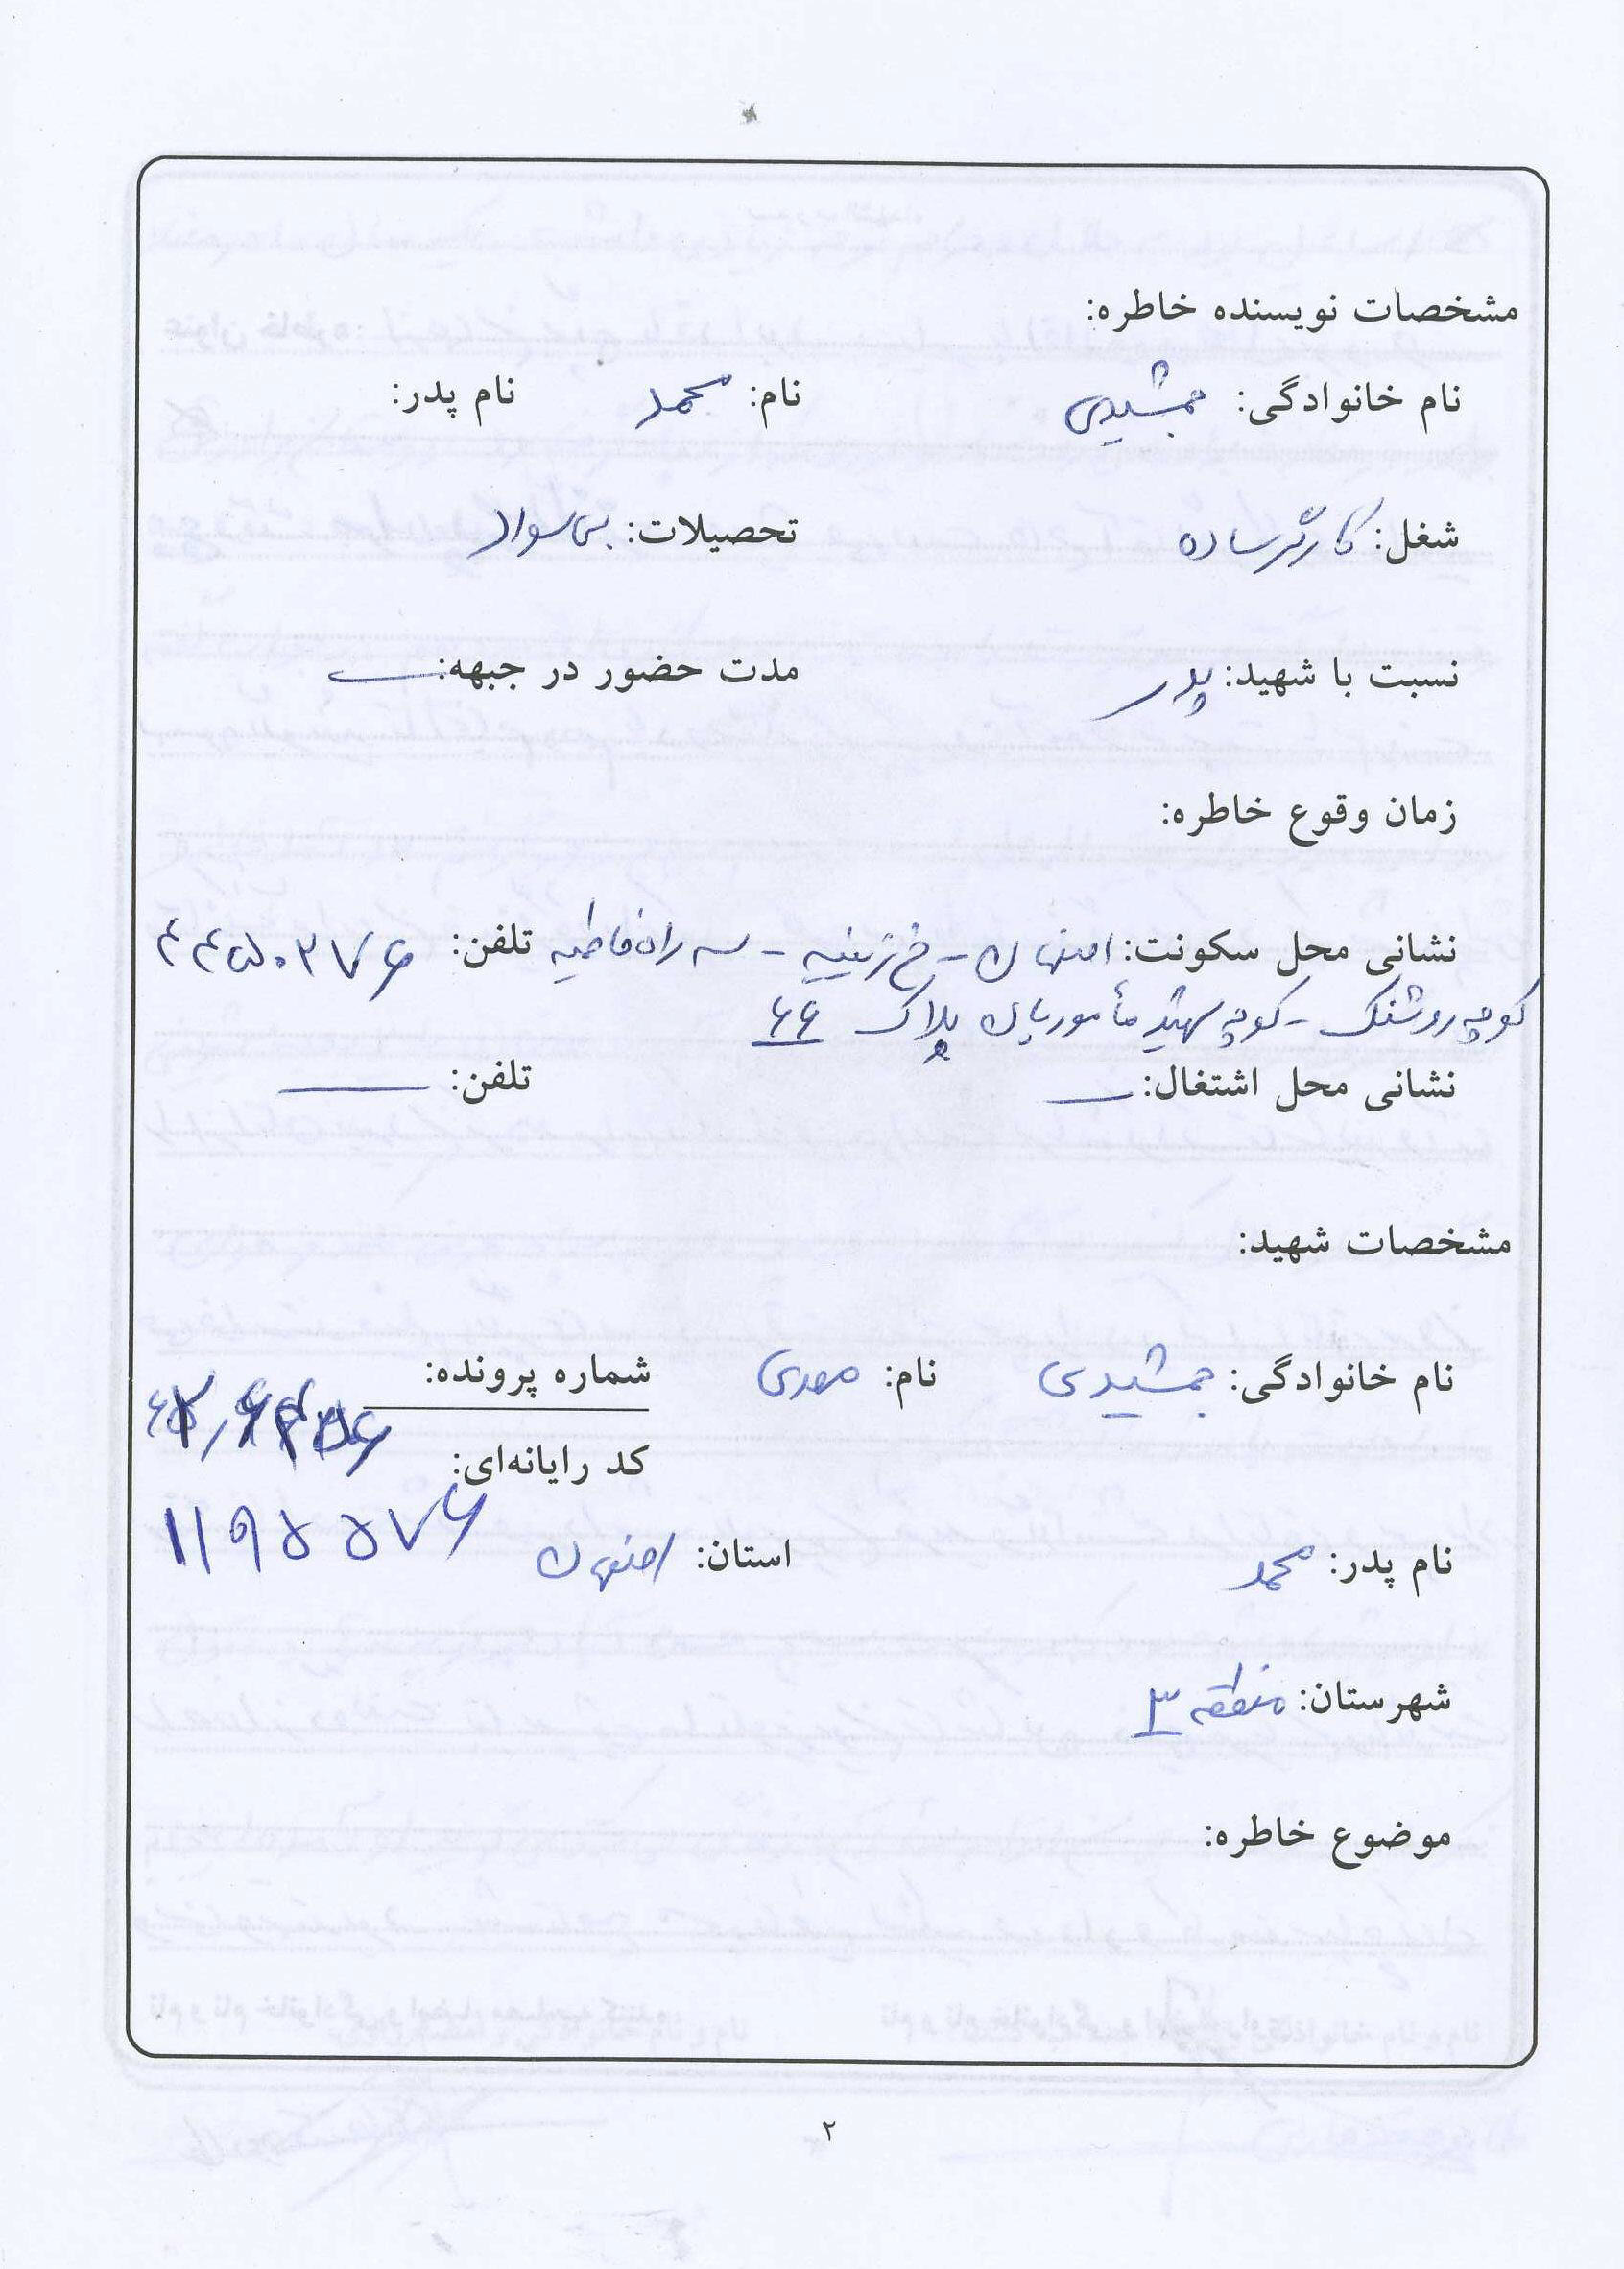 مشخصات نویسنده خاطره:
نام خانوادگی: جمشیدی نام: محمد نام پدر:
شغل: کارگر ساده تحصیلات: بی سواد
نسبت با شهید: پدر مدت حضور در جبهه: ــ
زمان وقوع خاطره:
نشانی محل سکونت: اصفهان - خ زینبیه - سه راه فاطمیه تلفن: ۴۴۵۰۲۷۶
کوچه روشنک - کوچه شهید مأموریان پلاک ۶۶
نشانی محل اشتغال: ــ تلفن: ــ
مشخصات شهید:
نام خانوادگی: جمشیدی نام: مهدی شماره پرونده:
کد رایانه‌ای:
۱۱۹۵۵۷۶
نام پدر: محمد استان: اصفهان
شهرستان: منطقه ۳
موضوع خاطره:
۲